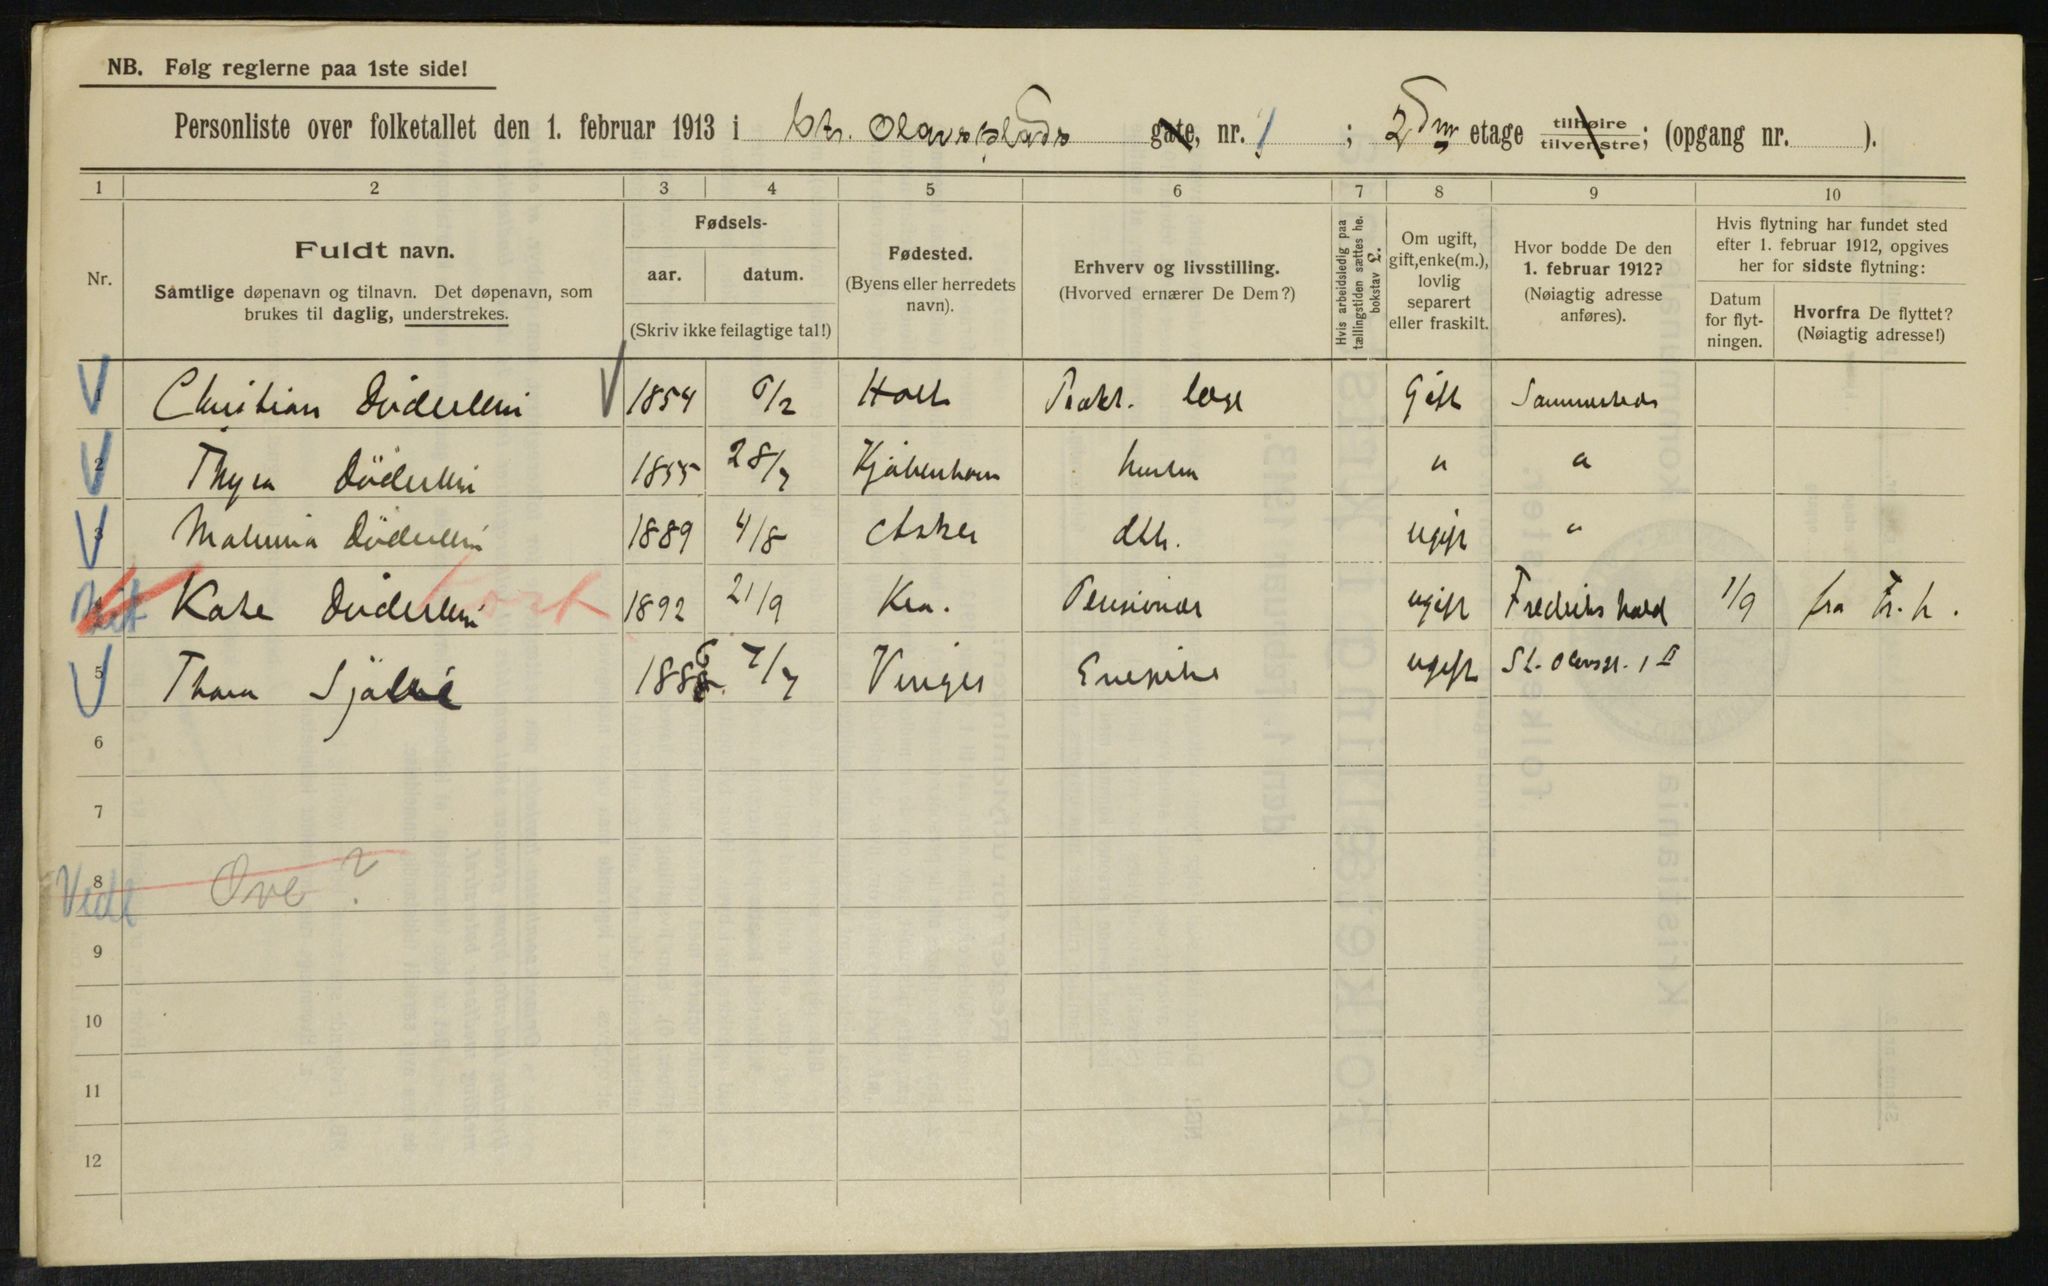 NB. Følg reglerne paa 1ste side!
Personliste over folketallet den 1. februar 1913 i St. Olavsplads gate, nr. 1 ; 2den etage tilhøire tilvenstre; (opgang nr. ).
1 2 3 4 5 6 7 8 9 10
Nr.
Fuldt navn.
Samtlige døpenavn og tilnavn. Det døpenavn, som
brukes til daglig, understrekes.
Fødsels-
aar. datum.
(Skriv ikke feilagtige tal!)
Fødested.
(Byens eller herredets
navn).
Erhverv og livsstilling.
(Hvorved ernærer De Dem?)
Hvis arbeidsledig paa
tællingstiden sættes her
bokstav L.
Om ugift,
gift, enke(m.),
lovlig
separert
eller fraskilt.
Hvor bodde De den
1. februar 1912?
(Nøiagtig adresse
anføres).
Hvis flytning har fundet sted
efter 1. februar 1912, opgives
her for sidste flytning:
Datum
for flyt-
ningen.
Hvorfra De flyttet?
(Nøiagtig adresse!)
1 Christian Döderlein 1854 6/2 Holt Prakt. læge Gift Sammesteds
2 Thyra Döderlein 1855 28/7 Kjøbenhavn hustru " "
3 Döderlein 1889 4/8 Asker dtr. ugift "
Kate Döderlein 1892 21/9 Kra. Pensionær ugift Fredrikshald 1/9 fra Fr.h.
bort
5 Thora 1886 7/7 Vinger Enepike ugift St. Olavsgt. 1 II
6
7
8 Ove?
9
10
11
12